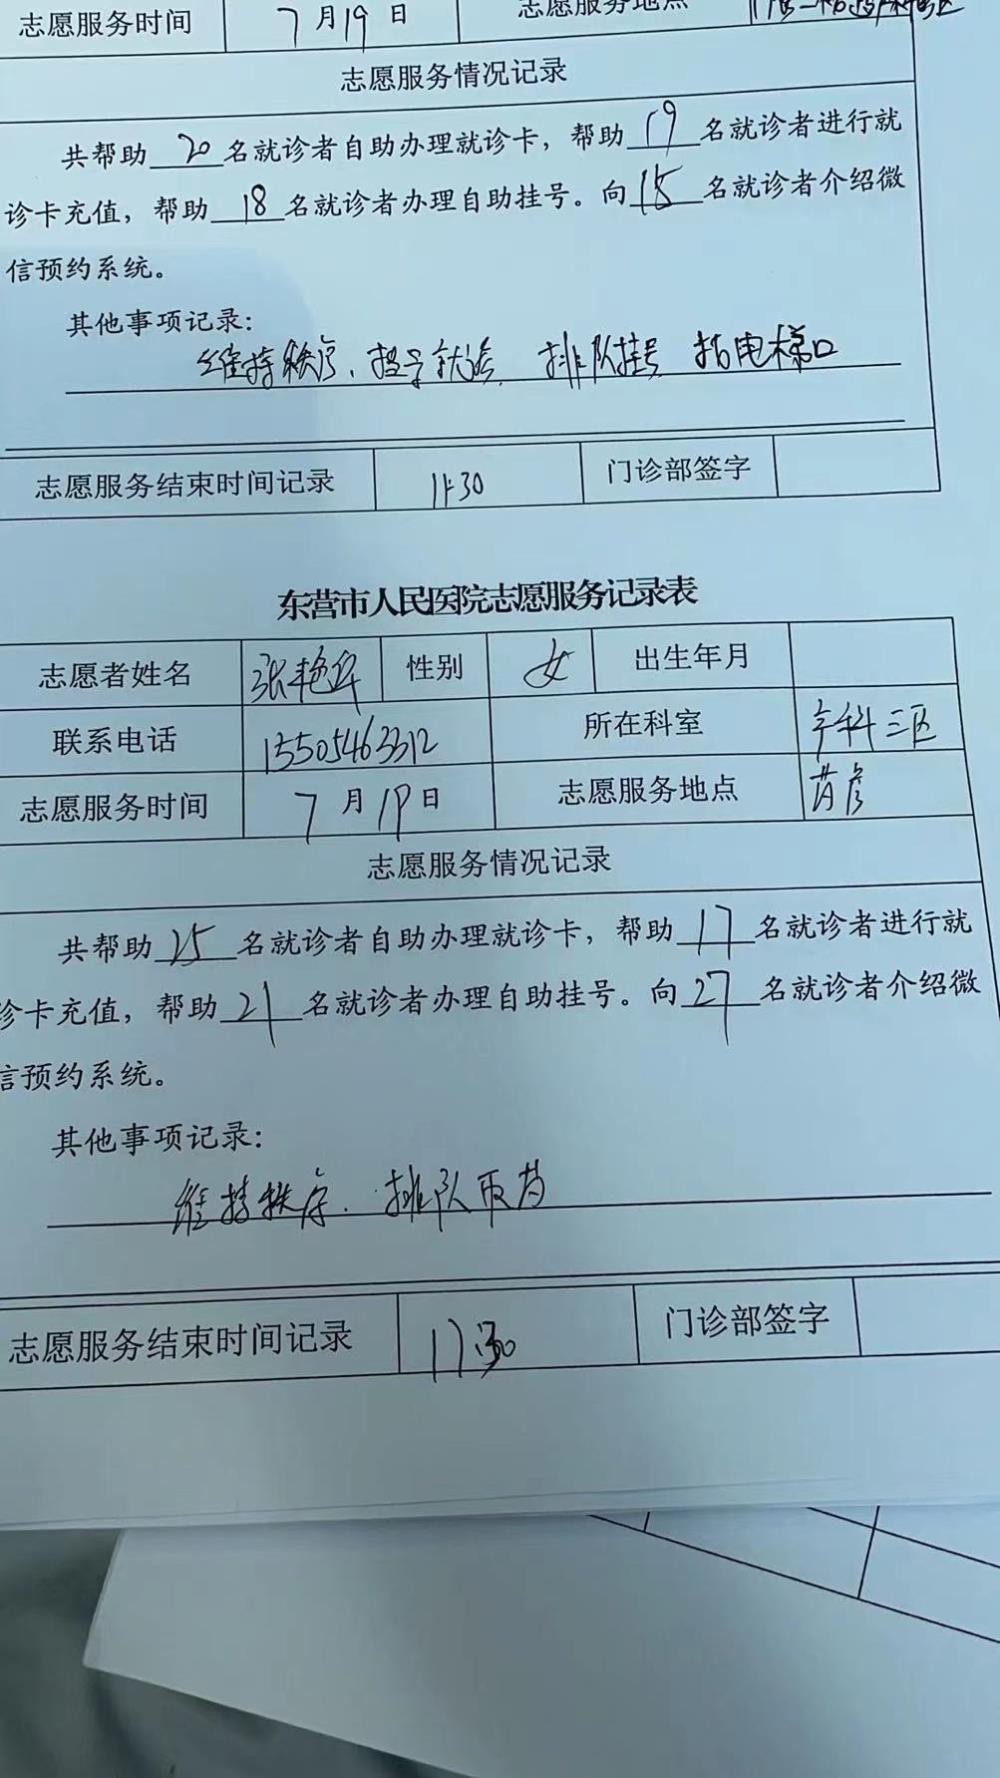 志愿服务时间 7 月 19 日 志愿服务地点
志愿服务情况记录
共帮助 20 名就诊者自助办理就诊卡，帮助 19 名就诊者进行就
诊卡充值，帮助 18 名就诊者办理自助挂号。向 15 名就诊者介绍微
信预约系统。
其他事项记录：
维持秩序、 就诊、排队挂号 指电梯口
志愿服务结束时间记录 11:30 门诊部签字
东营市人民医院志愿服务记录表
志愿者姓名 张艳 性别 女 出生年月
联系电话 15505463312 所在科室 产科三区
志愿服务时间 7 月 19 日 志愿服务地点 药房
志愿服务情况记录
共帮助 25 名就诊者自助办理就诊卡，帮助 17 名就诊者进行就
诊卡充值，帮助 21 名就诊者办理自助挂号。向 27 名就诊者介绍微
信预约系统。
其他事项记录：
维持秩序、排队取药
志愿服务结束时间记录 17:30 门诊部签字